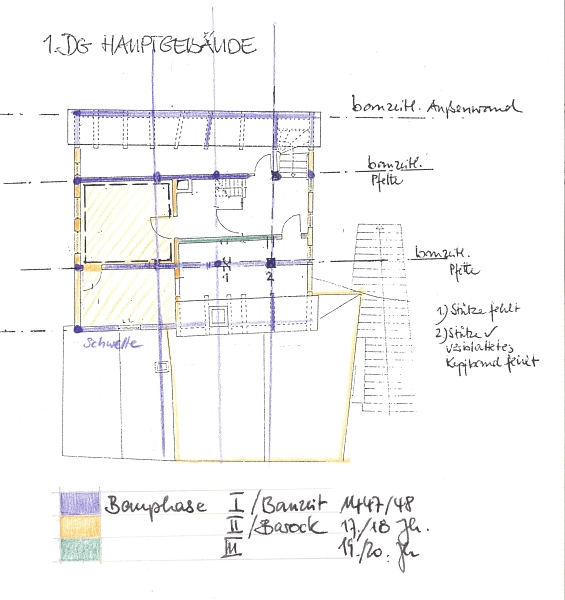 1. DG HAUPTGEBÄUDE
bauzeitl. Außenwand
bauzeitl.
Pfette
bauzeitl.
Pfette
1
2
1) Stütze fehlt
2) Stütze ✓
verblattetes
Kopfband fehlt
Schwelle
Bauphase I / Bauzeit 1447/48
II / Barock 17./18 Jh.
III 19./20. Jh